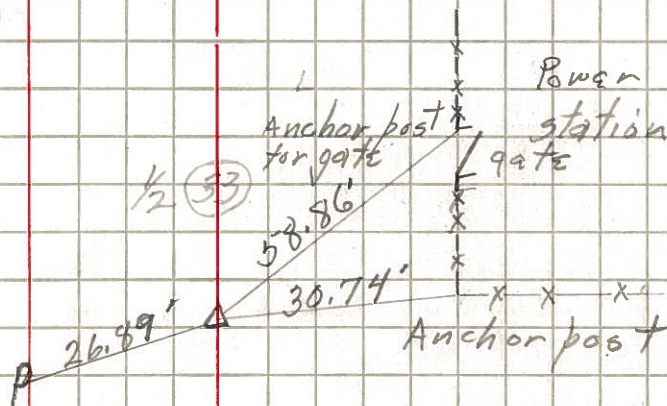 Power
station
Anchor post
for gate
gate
1/2 (33)
58.86'
30.74'
26.89'
Anchor post
P